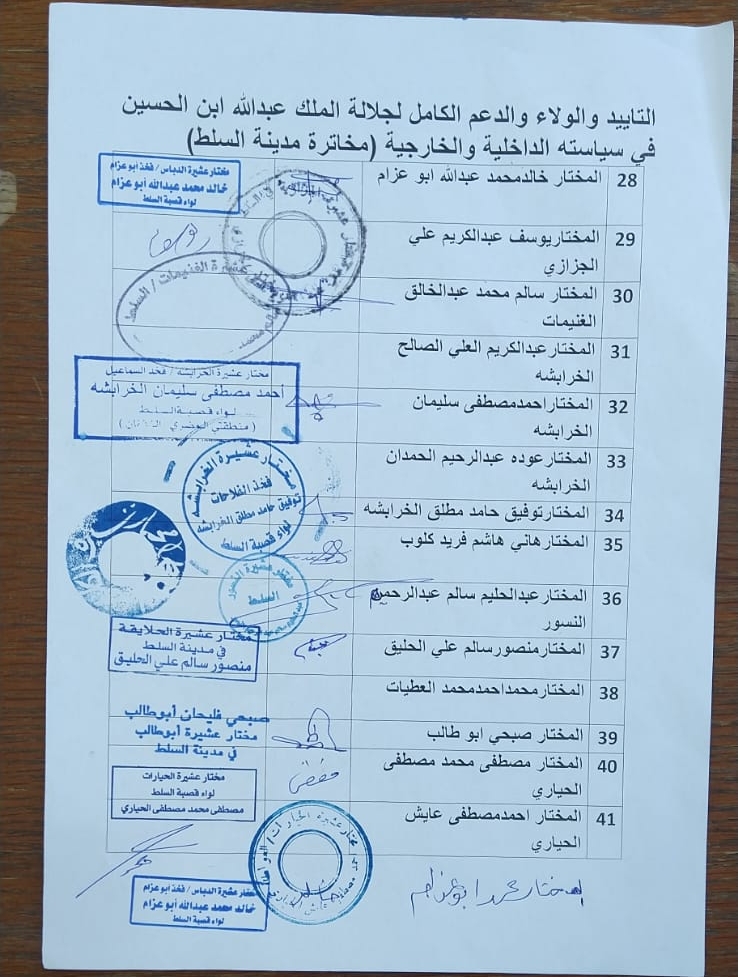 التاييد والولاء والدعم الكامل لجلالة الملك عبدالله ابن الحسين
في سياسته الداخلية والخارجية (مخاترة مدينة السلط)
28 المختار خالدمحمد عبدالله ابو عزام
مختار عشيرة الدباس / فخذ أبو عزام
خالد محمد عبدالله أبو عزام
لواء قصبة السلط
29 المختاريوسف عبدالكريم علي
الجزازي
30 المختار سالم محمد عبدالخالق
الغنيمات
مختار عشيرة الغنيمات / السلط
31 المختارعبدالكريم العلي الصالح
الخرابشه
32 المختاراحمدمصطفى سليمان
الخرابشه
مختار عشيرة الخرابشه / فخذ السماعيل
أحمد مصطفى سليمان الخرابشه
لواء قصبة السلط
33 المختارعوده عبدالرحيم الحمدان
الخرابشه
34 المختارتوفيق حامد مطلق الخرابشه
مختار عشيرة الخرابشه
فخذ الفلاحات
توفيق حامد مطلق الخرابشه
لواء قصبة السلط
35 المختارهاني هاشم فريد كلوب
36 المختارعبدالحليم سالم عبدالرحمن
النسور
مختار عشيرة النسور
السلط
37 المختارمنصورسالم علي الحليق
مختار عشيرة الحلايقة
في مدينة السلط
منصور سالم علي الحليق
38 المختارمحمداحمدمحمد العطيات
39 المختار صبحي ابو طالب
صبحي فليحان أبوطالب
مختار عشيرة أبوطالب
في مدينة السلط
40 المختار مصطفى محمد مصطفى
الحياري
مختار عشيرة الحيارات
لواء قصبة السلط
مصطفى محمد مصطفى الحياري
41 المختار احمدمصطفى عايش
الحياري
مختار عشيرة الحيارات
المختار محمد ابو عزام
مختار عشيرة الدباس / فخذ أبو عزام
خالد محمد عبدالله أبو عزام
لواء قصبة السلط